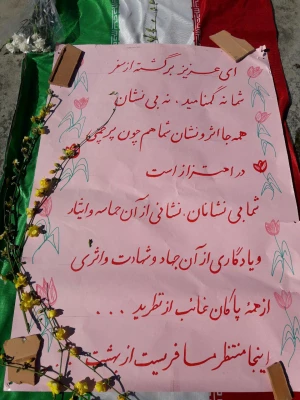 ای عزیز برگشته از سفر
شما نه گمنامید، نه بی نشان
همه جا اثر و نشان شما هم چون پرچمی
در اهتزاز است
شما بی نشانان، نشانی از آن حماسه و ایثار
و یادگاری از آن جهاد و شهادت و اثری
از همهٔ پاکان غائب از نظرید ...
اینجا منتظر مسافریست از بهشت